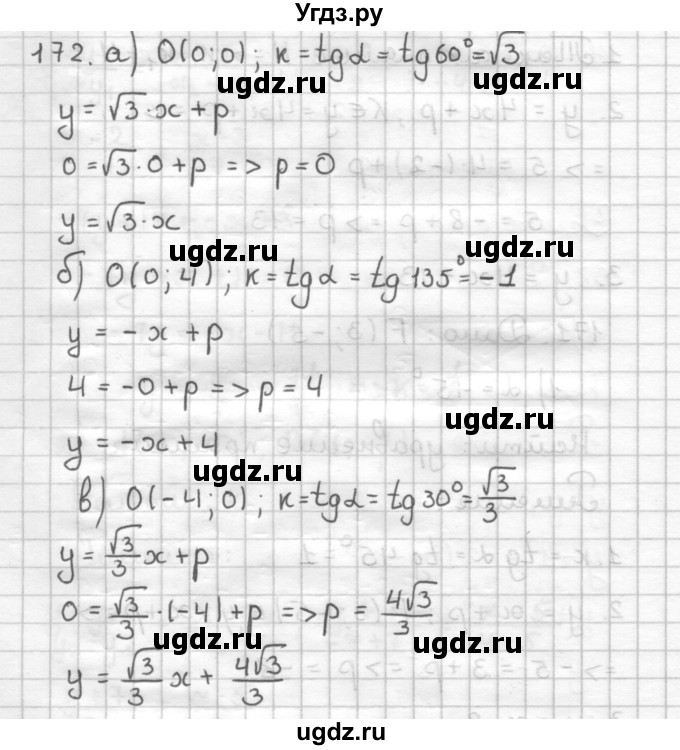 Угдз.ру
172. а) O(0;0); к = tg α = tg 60° = √3
ugdz.ru ugdz.ru
y = √3·x + p
0 = √3·0 + p => p = 0
y = √3·x
ugdz.ru ugdz.ru
б) O(0;4); к = tg α = tg 135° = -1
y = -x + p
4 = -0 + p => p = 4
ugdz.ru
y = -x + 4
ugdz.ru
в) O(-4;0); к = tg α = tg 30° = √3/3
y = √3/3 x + p
0 = √3/3 · (-4) + p => p = 4√3/3
ugdz.ru ugdz.ru
y = √3/3 x + 4√3/3
ugdz.ru